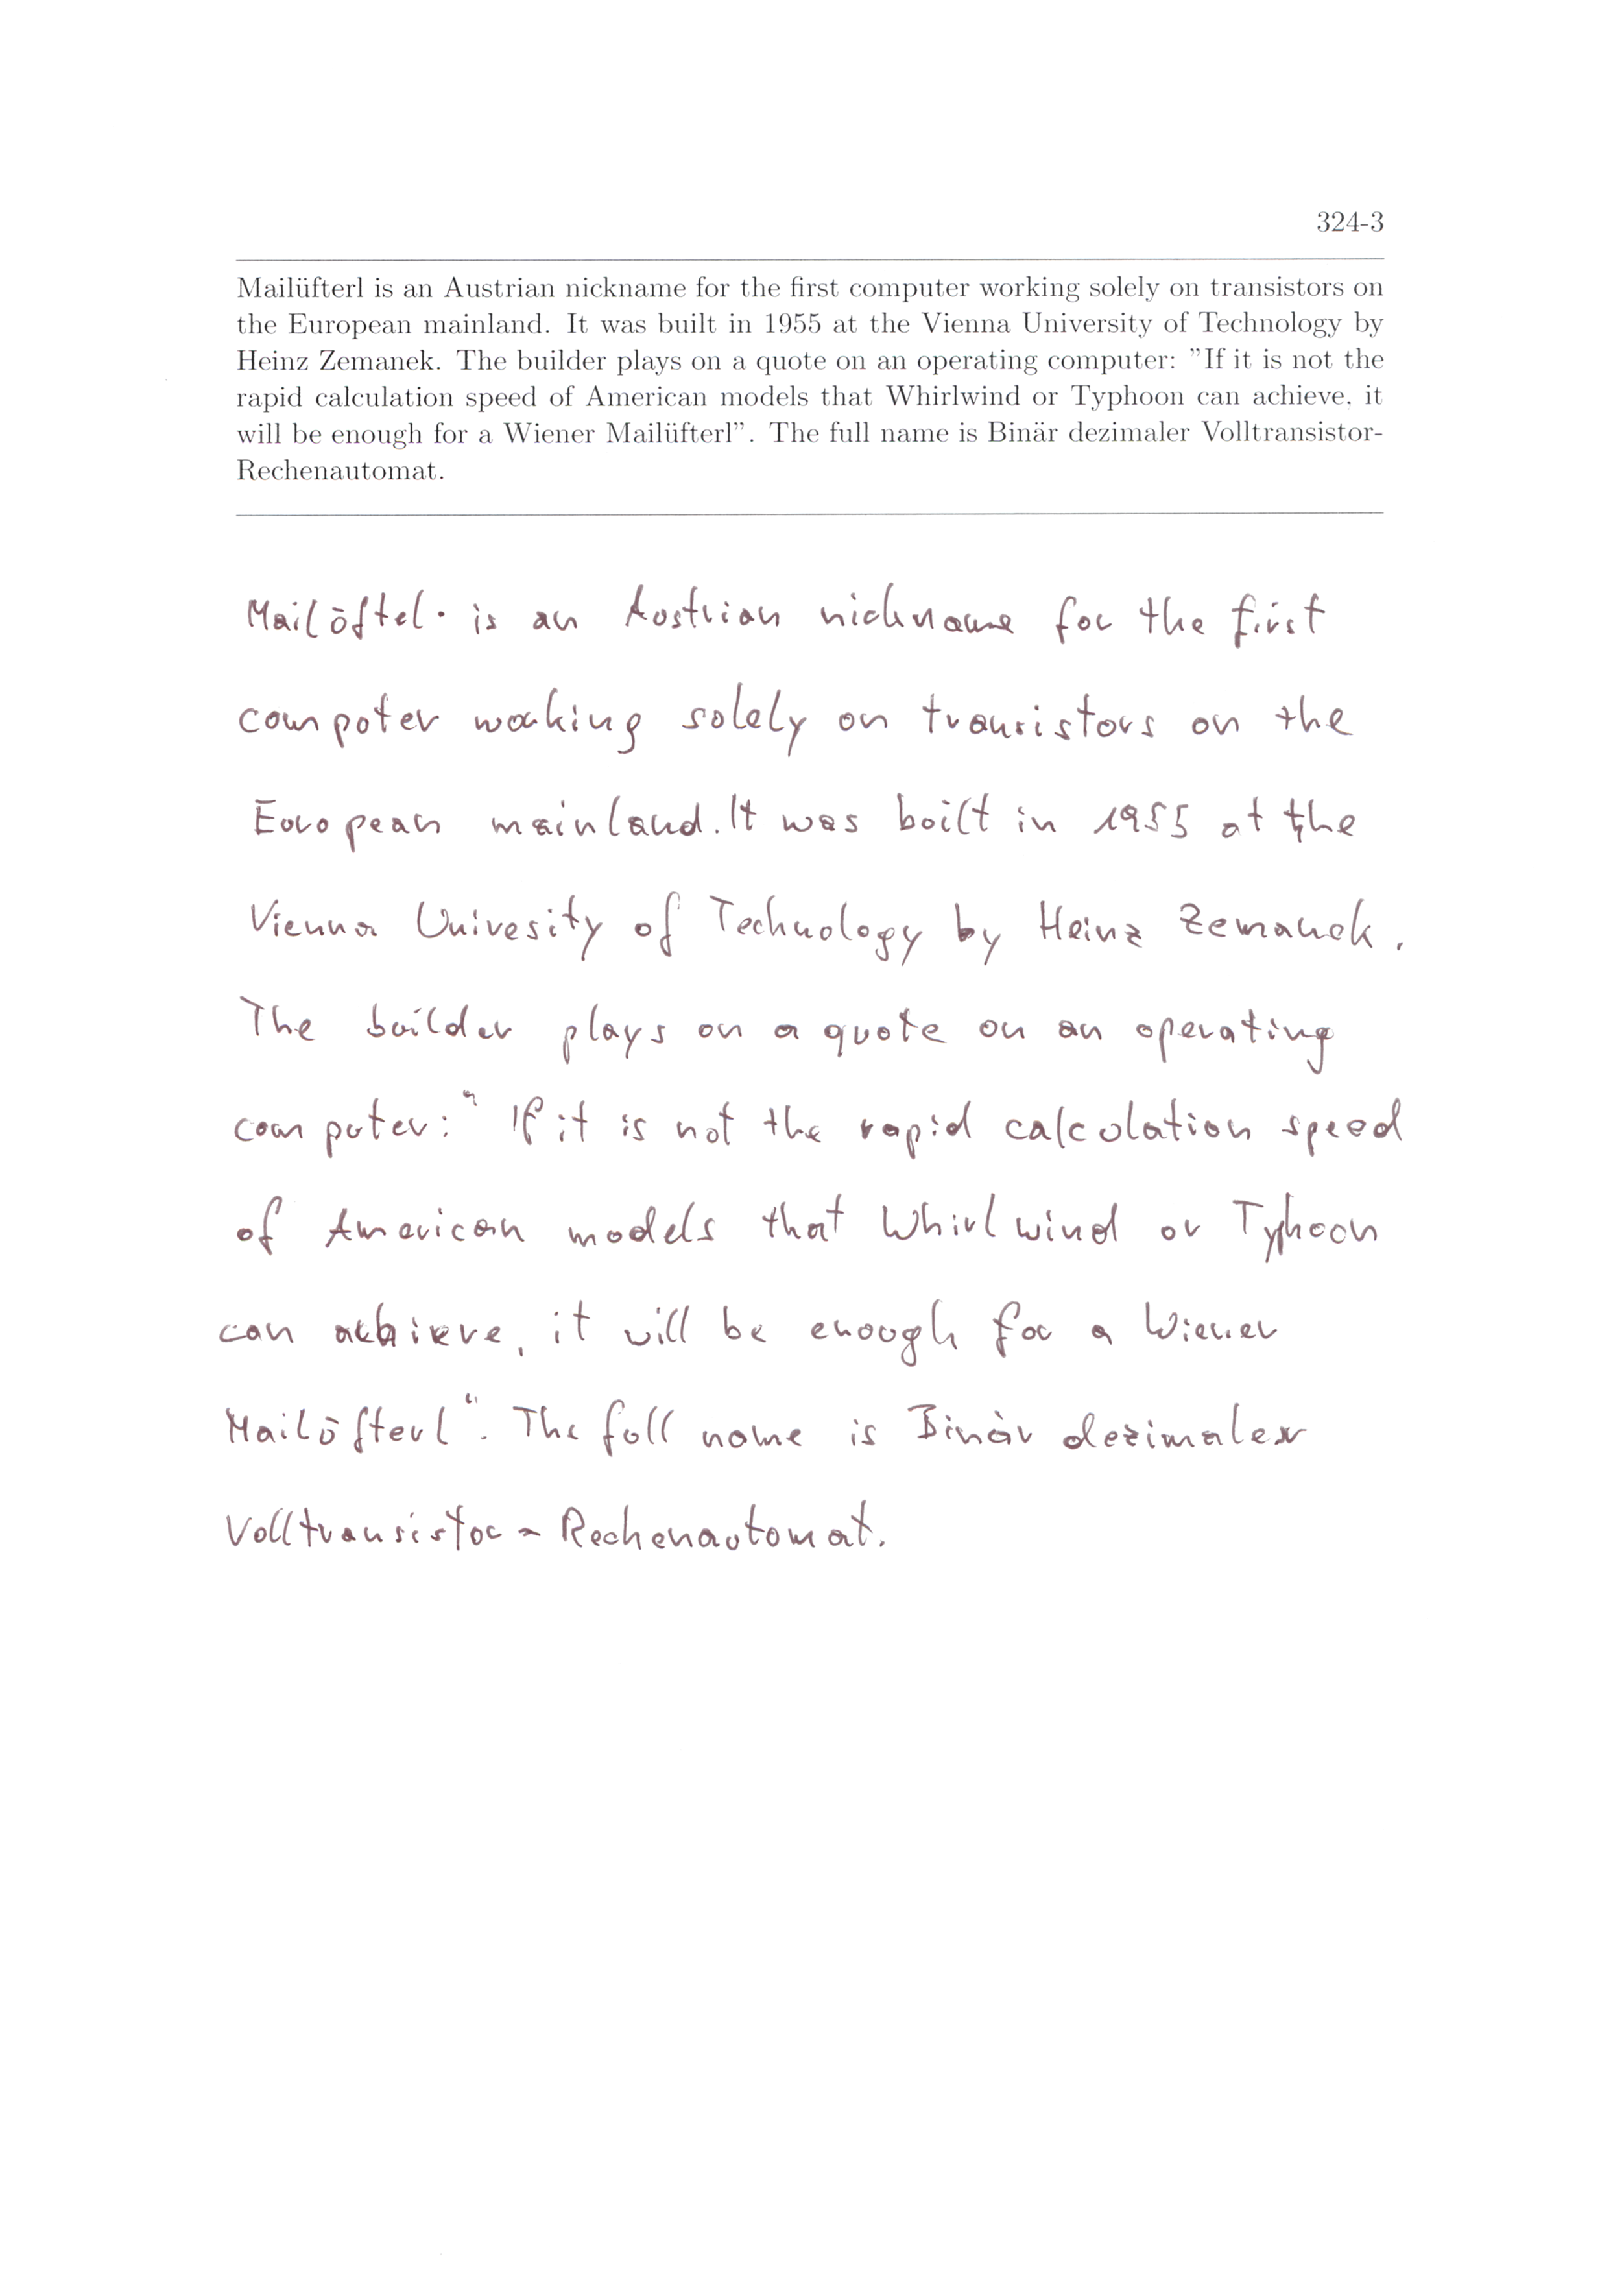 324-3
Mailüfterl is an Austrian nickname for the first computer working solely on transistors on
the European mainland. It was built in 1955 at the Vienna University of Technology by
Heinz Zemanek. The builder plays on a quote on an operating computer: "If it is not the
rapid calculation speed of American models that Whirlwind or Typhoon can achieve, it
will be enough for a Wiener Mailüfterl". The full name is Binär dezimaler Volltransistor-
Rechenautomat.
Mailüftel. is an Austrian nickname for the first
computer working solely on transistors on the
European mainland. It was built in 1955 at the
Vienna Univesity of Technology by Heinz Zemanek.
The builder plays on a quote on an operating
computer: " If it is not the rapid calculation speed
of American models that Whirlwind or Typhoon
can achieve, it will be enough for a Wiener
Mailüfterl". The full name is Binär dezimaler
Volltransistor-Rechenautomat.